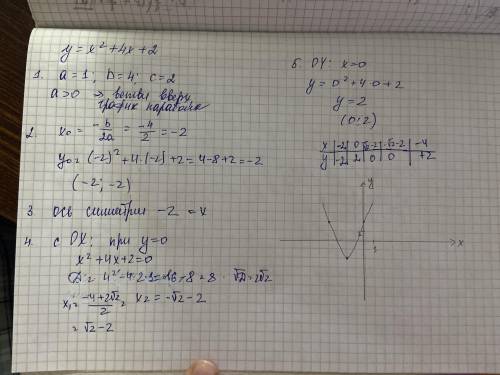 y = x² + 4x + 2
1. a = 1; b = 4; c = 2
a > 0 → ветви вверу
график парабола
2. x₀ = -b/2a = -4/2 = -2
y₀ = (-2)² + 4·(-2) + 2 = 4 - 8 + 2 = -2
(-2; -2)
3. ось симметрии -2 = x
4. с OX: при y = 0
x² + 4x + 2 = 0
D = 4² - 4·2·1 = 16 - 8 = 8 √D = 2√2
x₁ = (-4 + 2√2)/2 = x₂ = -√2 - 2
= √2 - 2
5. OY: x = 0
y = 0² + 4·0 + 2
y = 2
(0; 2)
x | -2 | 0 | √2-2 | -√2-2 | -4
y | -2 | 2 | 0 | 0 | +2
y
x
1